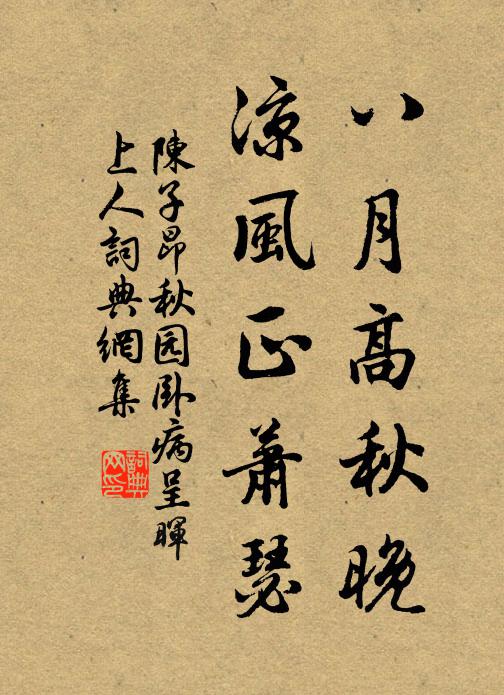 八月高秋晚
凉風正蕭瑟
陳子昂秋园卧病呈暉
上人詞典網集
詞典
网印